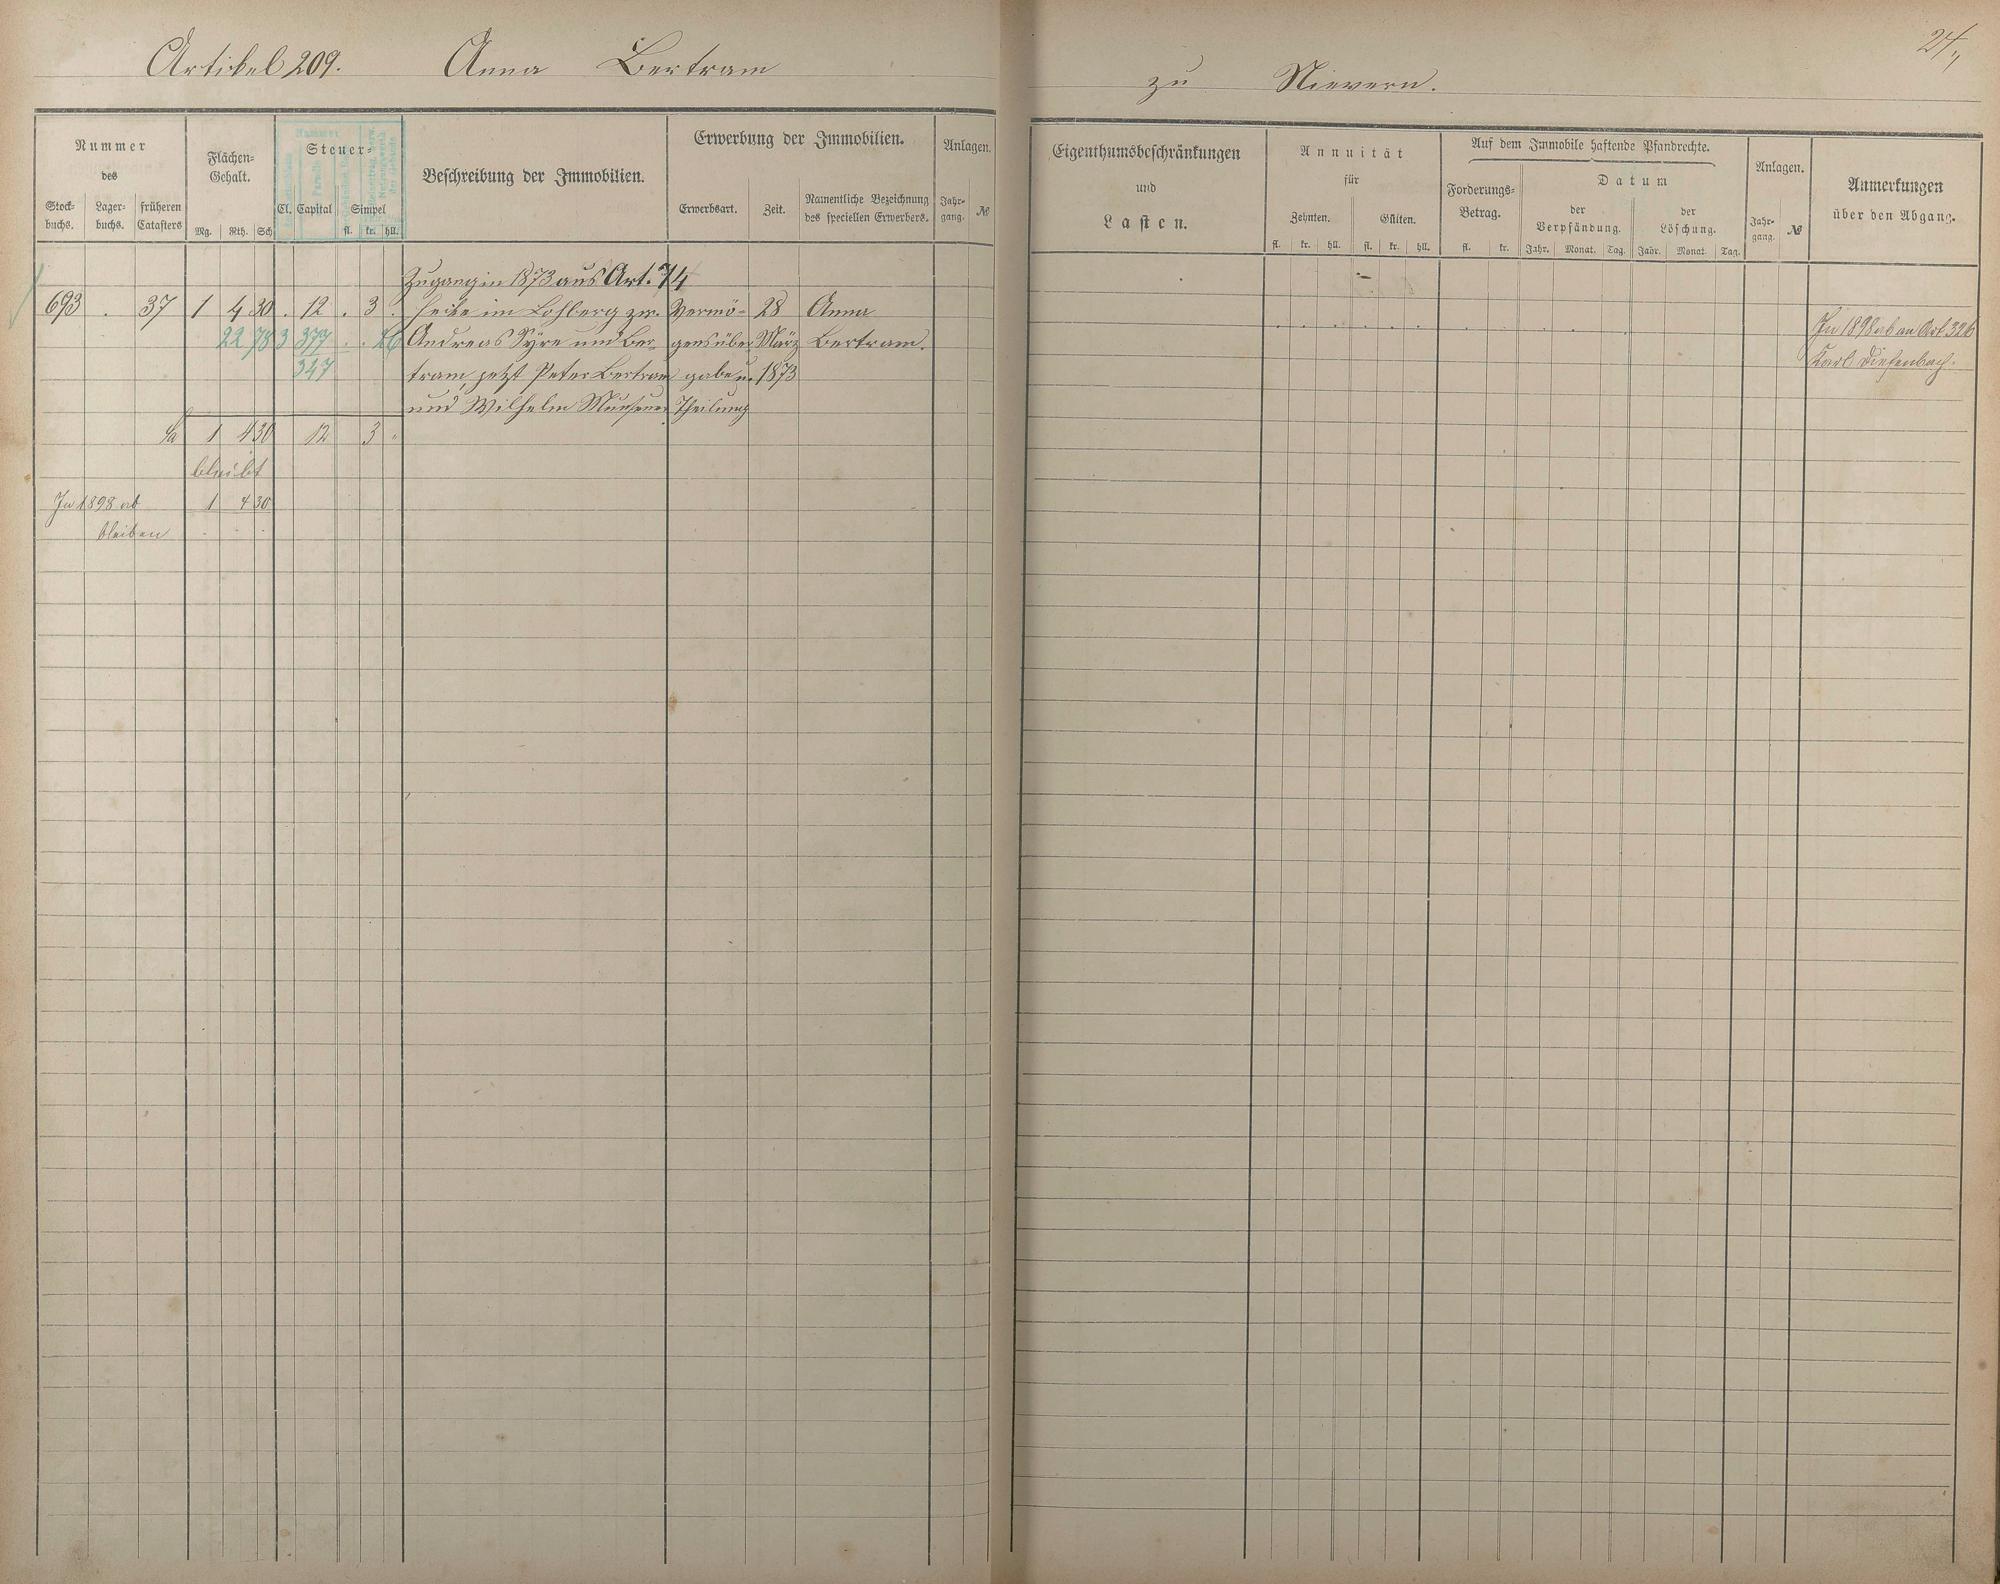 Artikel 209. Anna Bertram
zu Nievern.
Nummer
des
Stock-
buchs.
Lager-
buchs.
früheren
Catasters
Flächen-
Gehalt.
Mg. Rth. Sch
Steuer-
Cl. Capital Simpel
fl. kr. hll.
Nummer
Beschreibung der Immobilien.
Erwerbung der Immobilien.
Erwerbsart. Zeit. Namentliche Bezeichnung
des speciellen Erwerbers.
Anlagen.
Jahr-
gang. №
Eigenthumsbeschränkungen
und
Lasten.
Annuität
für
Zehnten. Gülten.
fl. kr. hll. fl. kr. hll.
Auf dem Immobile haftende Pfandrechte.
Forderungs-
Betrag.
fl. kr.
Datum
der
Verpfändung.
Jahr. Monat. Tag.
der
Löschung.
Jahr. Monat. Tag.
Anlagen.
Jahr-
gang. №
Anmerkungen
über den Abgang.
Zugang in 1873 aus Art. 74
693 . 37 1 4 30 . 12 . 3 . Hecke im Lohberg zw. Vermö- 28 Anna
22 78 3 377 . . 26 Andreas Syre und Ber- gensüber März Bertram.
347 tram, jetzt Peter Bertram gabe u. 1873
und Wilhelm Theilung
Sa 1 4 30 12 3 "
bleibt
In 1898 ab 1 4 30
bleiben . . .
In 1898 ab an Art 326
Karl Diefenbach.